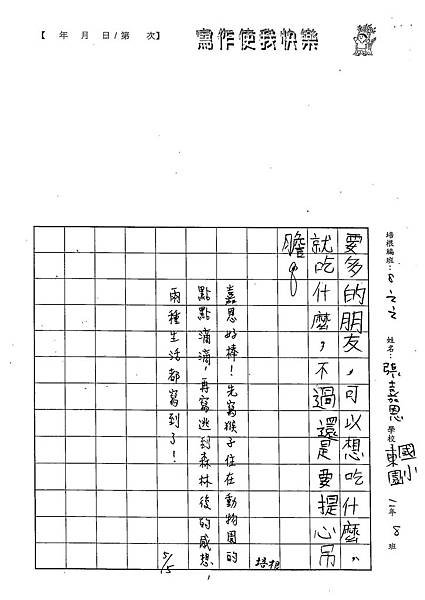 【 年 月 日/第 次】
寫作使我快樂
培根編班：8-22 姓名：張嘉恩 學校 東園國小 二年 8 班
要多的朋友，可以想吃什麼，
就吃什麼，不過還是要提心吊
膽。
嘉恩好棒！先寫猴子住在動物園的
點點滴滴，再寫逃到森林後的感想
兩種生活都寫到了！
培根
5/5